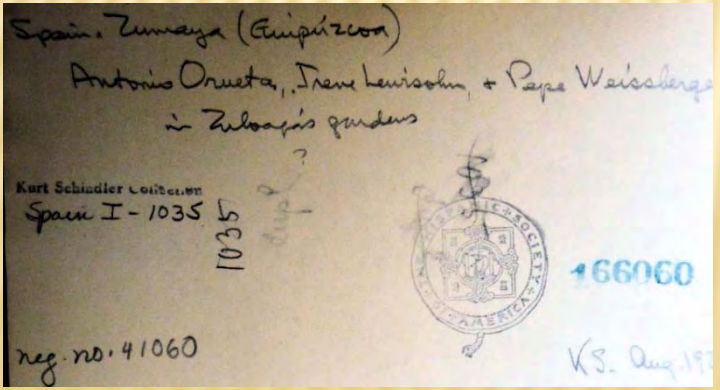 Spain. Zumaya (Guipúzcoa)
Antonio Orueta, Irene Lewisohn, + Pepe Weissberge
in Zuloaga's gardens
Kurt Schindler Collection
Spain I - 1035
1035
dupl ?
THE HISPANIC SOCIETY OF AMERICA
166060
neg. no. 41060
KS. Aug. 193